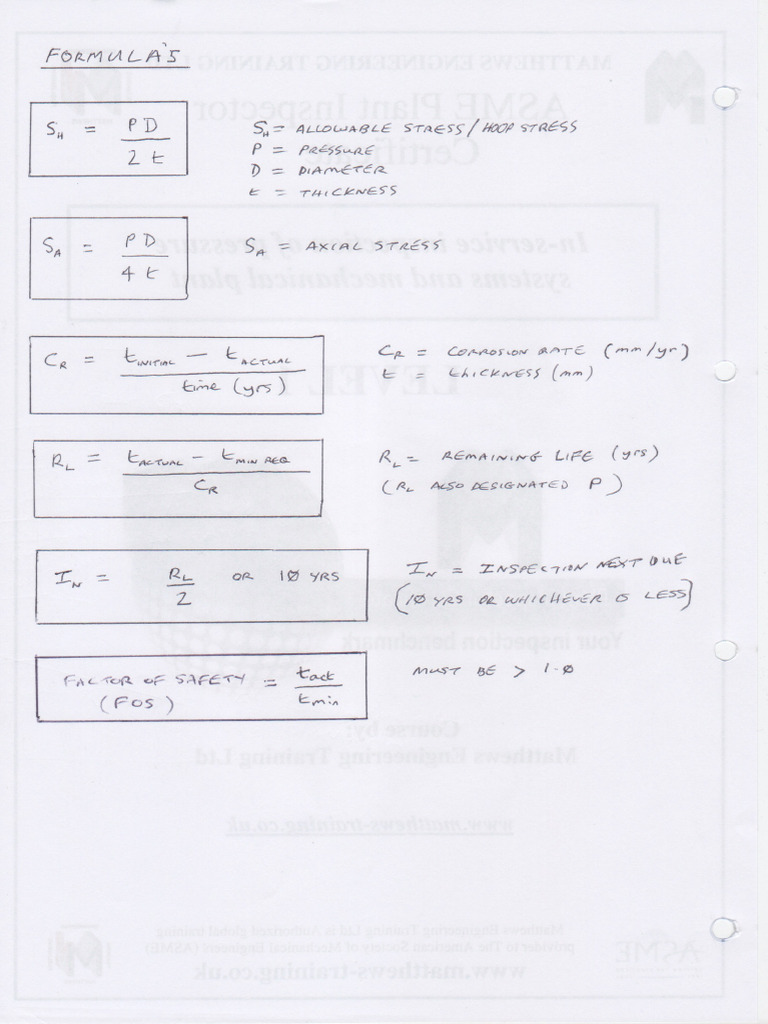 FORMULA'S
S_H = PD / 2t
S_H = ALLOWABLE STRESS/HOOP STRESS
P = PRESSURE
D = DIAMETER
t = THICKNESS
S_A = PD / 4t
S_A = AXIAL STRESS
C_R = t_INITIAL — t_ACTUAL / time (yrs)
C_R = CORROSION RATE (mm/yr)
t = thickness (mm)
R_L = t_ACTUAL — t_MIN REQ / C_R
R_L = REMAINING LIFE (yrs)
(R_L ALSO DESIGNATED P)
I_N = R_L / 2 OR 10 YRS
I_N = INSPECTION NEXT DUE
(10 YRS OR WHICHEVER IS LESS)
FACTOR OF SAFETY (FOS) = t_act / t_min
MUST BE > 1.0
MATTHEWS ENGINEERING TRAINING
ASME Plant Inspector
Certificate
In-service inspection of pressure
systems and mechanical plant
LEVEL 1
Your inspection benchmark
Course by:
Matthews Engineering Training Ltd
www.matthews-training.co.uk
Matthews Engineering Training Ltd is Authorized global training
provider to The American Society of Mechanical Engineers (ASME)
www.matthews-training.co.uk
ASME